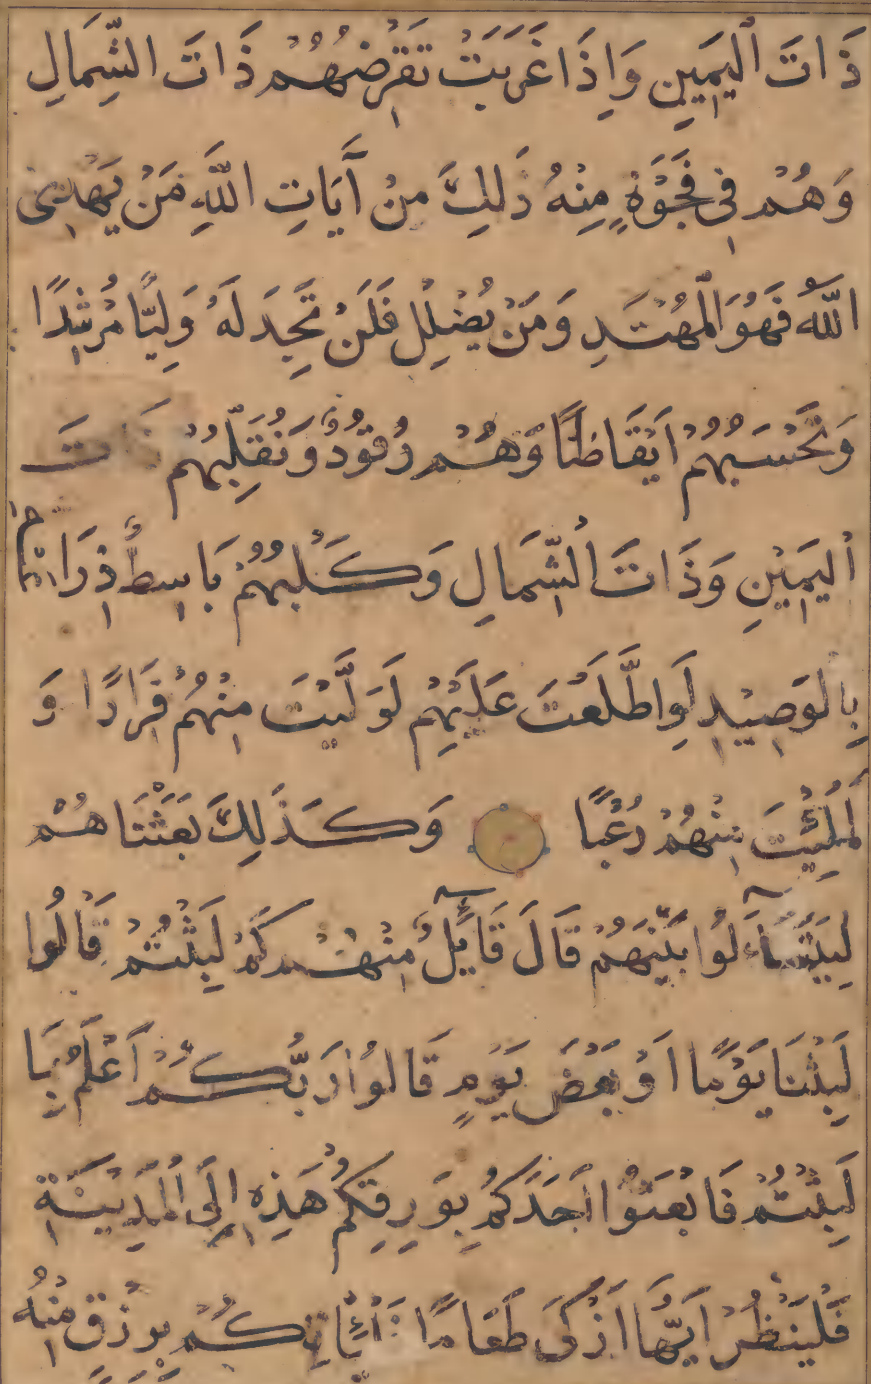 ذَاتَ الْيَمِينِ وَاِذَا غَرَبَتْ تَقْرِضُهُمْ ذَاتَ الشِّمَالِ
وَهُمْ فِى فَجْوَةٍ مِنْهُ ذَلِكَ مِنْ آيَاتِ اللَّهِ مَنْ يَهْدِى
اللَّهُ فَهُوَ الْمُهْتَدِ وَمَنْ يُضْلِلْ فَلَنْ تَجِدَ لَهُ وَلِيًّا مُرْشِدًا
وَتَحْسَبُهُمْ اَيْقَاظًا وَهُمْ رُقُودٌ وَنُقَلِّبُهُمْ ذَاتَ
الْيَمِيْنِ وَذَاتَ الشِّمَالِ وَكَلْبُهُمْ بَاسِطٌ
بِالْوَصِيْدِ لَوِ اطَّلَعْتَ عَلَيْهِمْ لَوَلَّيْتَ مِنْهُمْ فِرَارًا وَ
لَمُلِئْتَ مِنْهُمْ رُعْبًا وَكَذَلِكَ بَعَثْنَاهُمْ
لِيَتَسَآءَلُوا بَيْنَهُمْ قَالَ قَآئِلٌ مِنْهُمْ كَمْ لَبِثْتُمْ قَالُوا
لَبِثْنَا يَوْمًا اَوْ بَعْضَ يَوْمٍ قَالُوا رَبُّكُمْ اَعْلَمُ بِمَا
لَبِثْتُمْ فَابْعَثُوا اَحَدَكُمْ بِوَرِقِكُمْ هَذِهِ اِلَى الْمَدِيْنَةِ
فَلْيَنْظُرْ اَيُّهَا اَزْكَى طَعَامًا كُمْ بِرِزْقٍ مِنْهُ